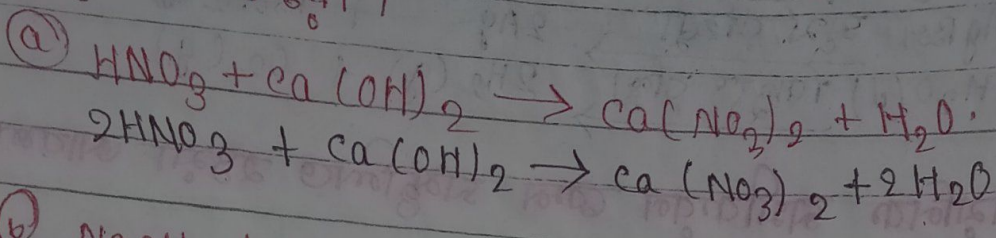 (a) HNO3 + Ca(OH)2 → Ca(NO3)2 + H2O.
2HNO3 + Ca(OH)2 → Ca(NO3)2 + 2H2O
(b)